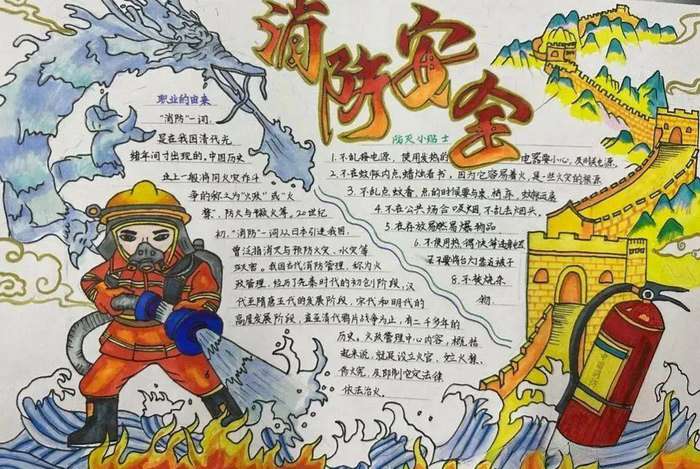 消防安全
职业的由来
"消防"一词,
是在我国清代光
绪年间才出现的,中国历史
史上一般将同火灾作斗
争的称之为"火政"或"火
禁",防火与救火等,20世纪
初,"消防"一词从日本引进我国,
曾泛指消灭与预防火灾、水灾等
灾害。我国古代消防管理,称为火
政管理,经历了先秦时代的初创阶段,汉
代至隋唐五代的发展阶段,宋代和明代的
高度发展阶段,直至清代鸦片战争为止,有二千多年的
历史。火政管理中心内容,概括
起来说,就是设立火官、火禁、
火宪,及即制定法律
依法治火。
防灭小贴士
1.不乱接电源,使发热的电器要小心,及时电源.
2.不在蚊帐内点蜡烛看书,因为它容易着火,是一些火灾的根源
3.不乱点蚊香,点的时候要与桌,椅床,蚊帐远点
4.不在公共场合吸烟 不乱丢烟头,
5.不在存放易燃易爆物品
6.不使用热得快等违
7.不要将台灯靠近被子
8.不焚烧杂
物.